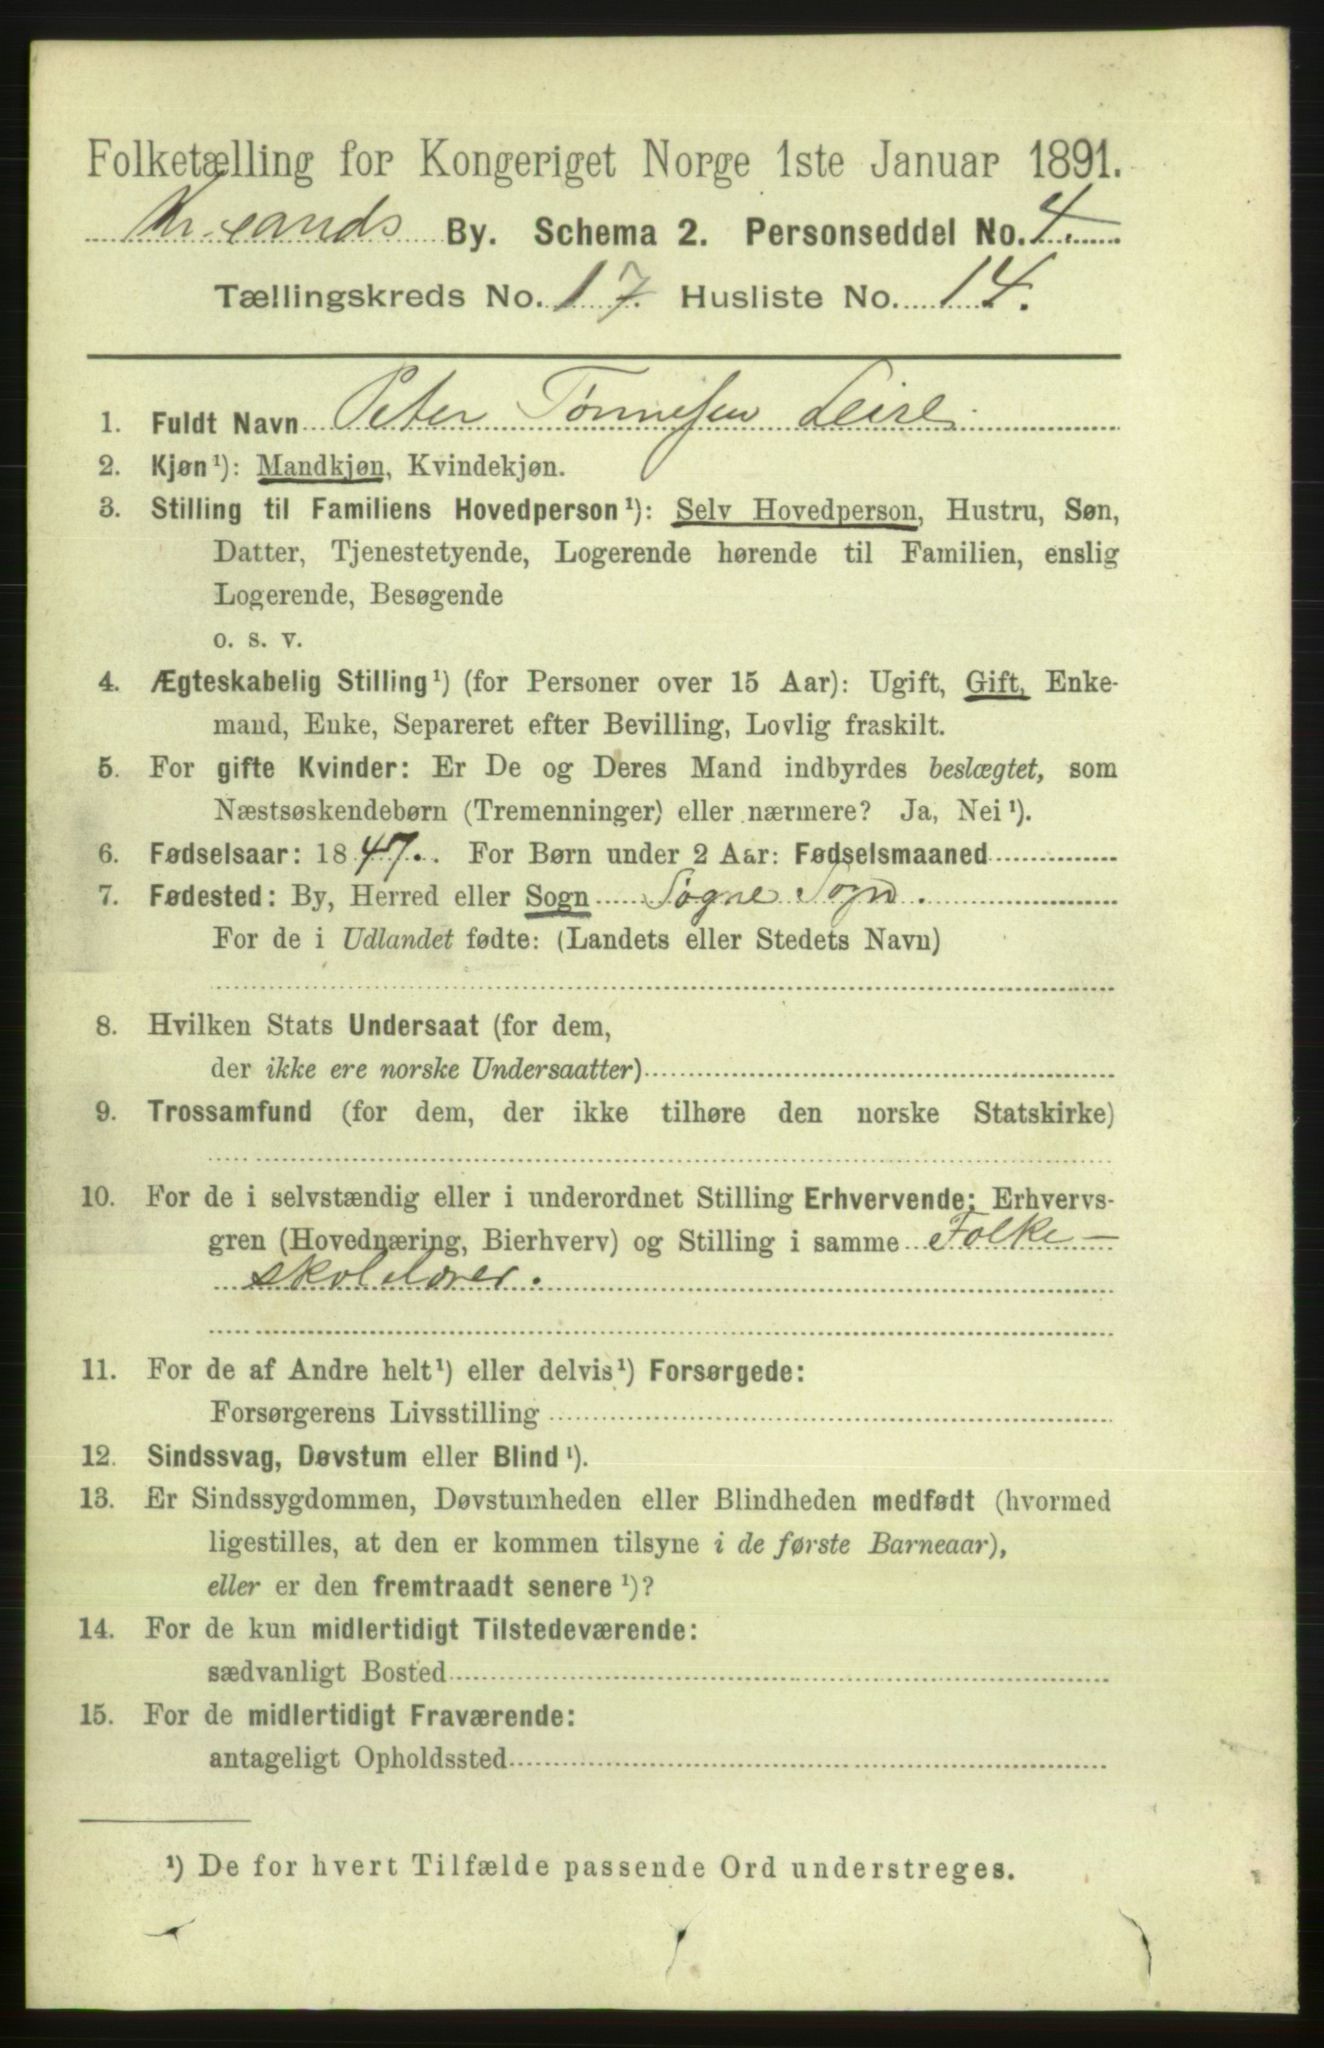 Folketælling for Kongeriget Norge 1ste Januar 1891.
Kr.sands By. Schema 2. Personseddel No. 4.
Tællingskreds No. 17. Husliste No. 14.
1. Fuldt Navn Peter Tønnesen Leire
2. Kjøn¹): Mandkjøn, Kvindekjøn.
3. Stilling til Familiens Hovedperson¹): Selv Hovedperson, Hustru, Søn,
Datter, Tjenestetyende, Logerende hørende til Familien, enslig
Logerende, Besøgende
o. s. v.
4. Ægteskabelig Stilling¹) (for Personer over 15 Aar): Ugift, Gift, Enke-
mand, Enke, Separeret efter Bevilling, Lovlig fraskilt.
5. For gifte Kvinder: Er De og Deres Mand indbyrdes beslægtet, som
Næstsøskendebørn (Tremenninger) eller nærmere? Ja, Nei¹).
6. Fødselsaar: 1847. For Børn under 2 Aar: Fødselsmaaned
7. Fødested: By, Herred eller Sogn Søgne Sogn.
For de i Udlandet fødte: (Landets eller Stedets Navn)
8. Hvilken Stats Undersaat (for dem,
der ikke ere norske Undersaatter)
9. Trossamfund (for dem, der ikke tilhøre den norske Statskirke)
10. For de i selvstændig eller i underordnet Stilling Erhvervende: Erhvervs-
gren (Hovednæring, Bierhverv) og Stilling i samme Folke-
skolelærer.
11. For de af Andre helt¹) eller delvis¹) Forsørgede:
Forsørgerens Livsstilling
12. Sindssvag, Døvstum eller Blind¹).
13. Er Sindssygdommen, Døvstumheden eller Blindheden medfødt (hvormed
ligestilles, at den er kommen tilsyne i de første Barneaar),
eller er den fremtraadt senere¹)?
14. For de kun midlertidigt Tilstedeværende:
sædvanligt Bosted
15. For de midlertidigt Fraværende:
antageligt Opholdssted
¹) De for hvert Tilfælde passende Ord understreges.